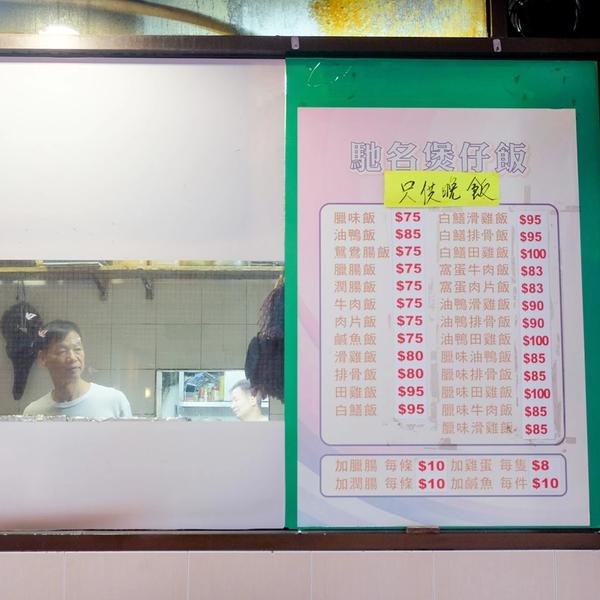 馳名煲仔飯
只供晚飯
臘味飯 $75 白鱔滑雞飯 $95
油鴨飯 $85 白鱔排骨飯 $95
鴛鴦腸飯 $75 白鱔田雞飯 $100
臘腸飯 $75 窩蛋牛肉飯 $83
潤腸飯 $75 窩蛋肉片飯 $83
牛肉飯 $75 油鴨滑雞飯 $90
肉片飯 $75 油鴨排骨飯 $90
鹹魚飯 $75 油鴨田雞飯 $100
滑雞飯 $80 臘味油鴨飯 $85
排骨飯 $80 臘味排骨飯 $85
田雞飯 $95 臘味田雞飯 $100
白鱔飯 $95 臘味牛肉飯 $85
臘味滑雞飯 $85
加臘腸 每條 $10 加雞蛋 每隻 $8
加潤腸 每條 $10 加鹹魚 每件 $10